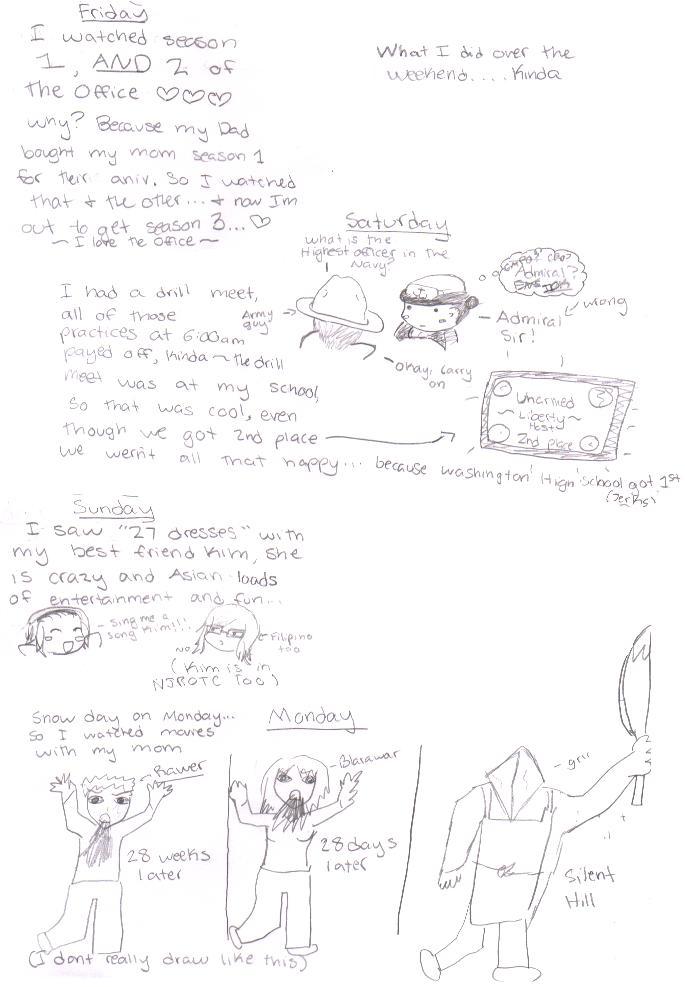 Friday
I watched season
1, AND 2 of
the Office ♡♡♡
why? Because my Dad
bought my mom season 1
for their aniv. So I watched
that & the other... & now Im
out to get season 3... ♡
~ I love the Office ~
What I did over the
weekend.... Kinda
Saturday
what is the
Highest officer in the
Navy?
Admiral?
wrong
Army
guy
Admiral
Sir!
okay, carry
on
I had a drill meet,
all of those
practices at 6:00am
payed off, kinda ~ the drill
meet was at my school,
so that was cool, even
though we got 2nd place
we wern't all that happy... because Washington High School got 1st
(Jerks)
Unarmed
~ Liberty ~
2nd place
Sunday
I saw "27 dresses" with
my best friend Kim, she
is crazy and Asian loads
of entertainment and fun...
- Sing me a
song Kim!!!
No
Filipino
too
(Kim is in
NJROTC too)
Monday
Snow day on Monday...
so I watched movies
with my mom
Rawer
28 weeks
later
Blarawar
28 days
later
- grrr
Silent
Hill
(I dont really draw like this)